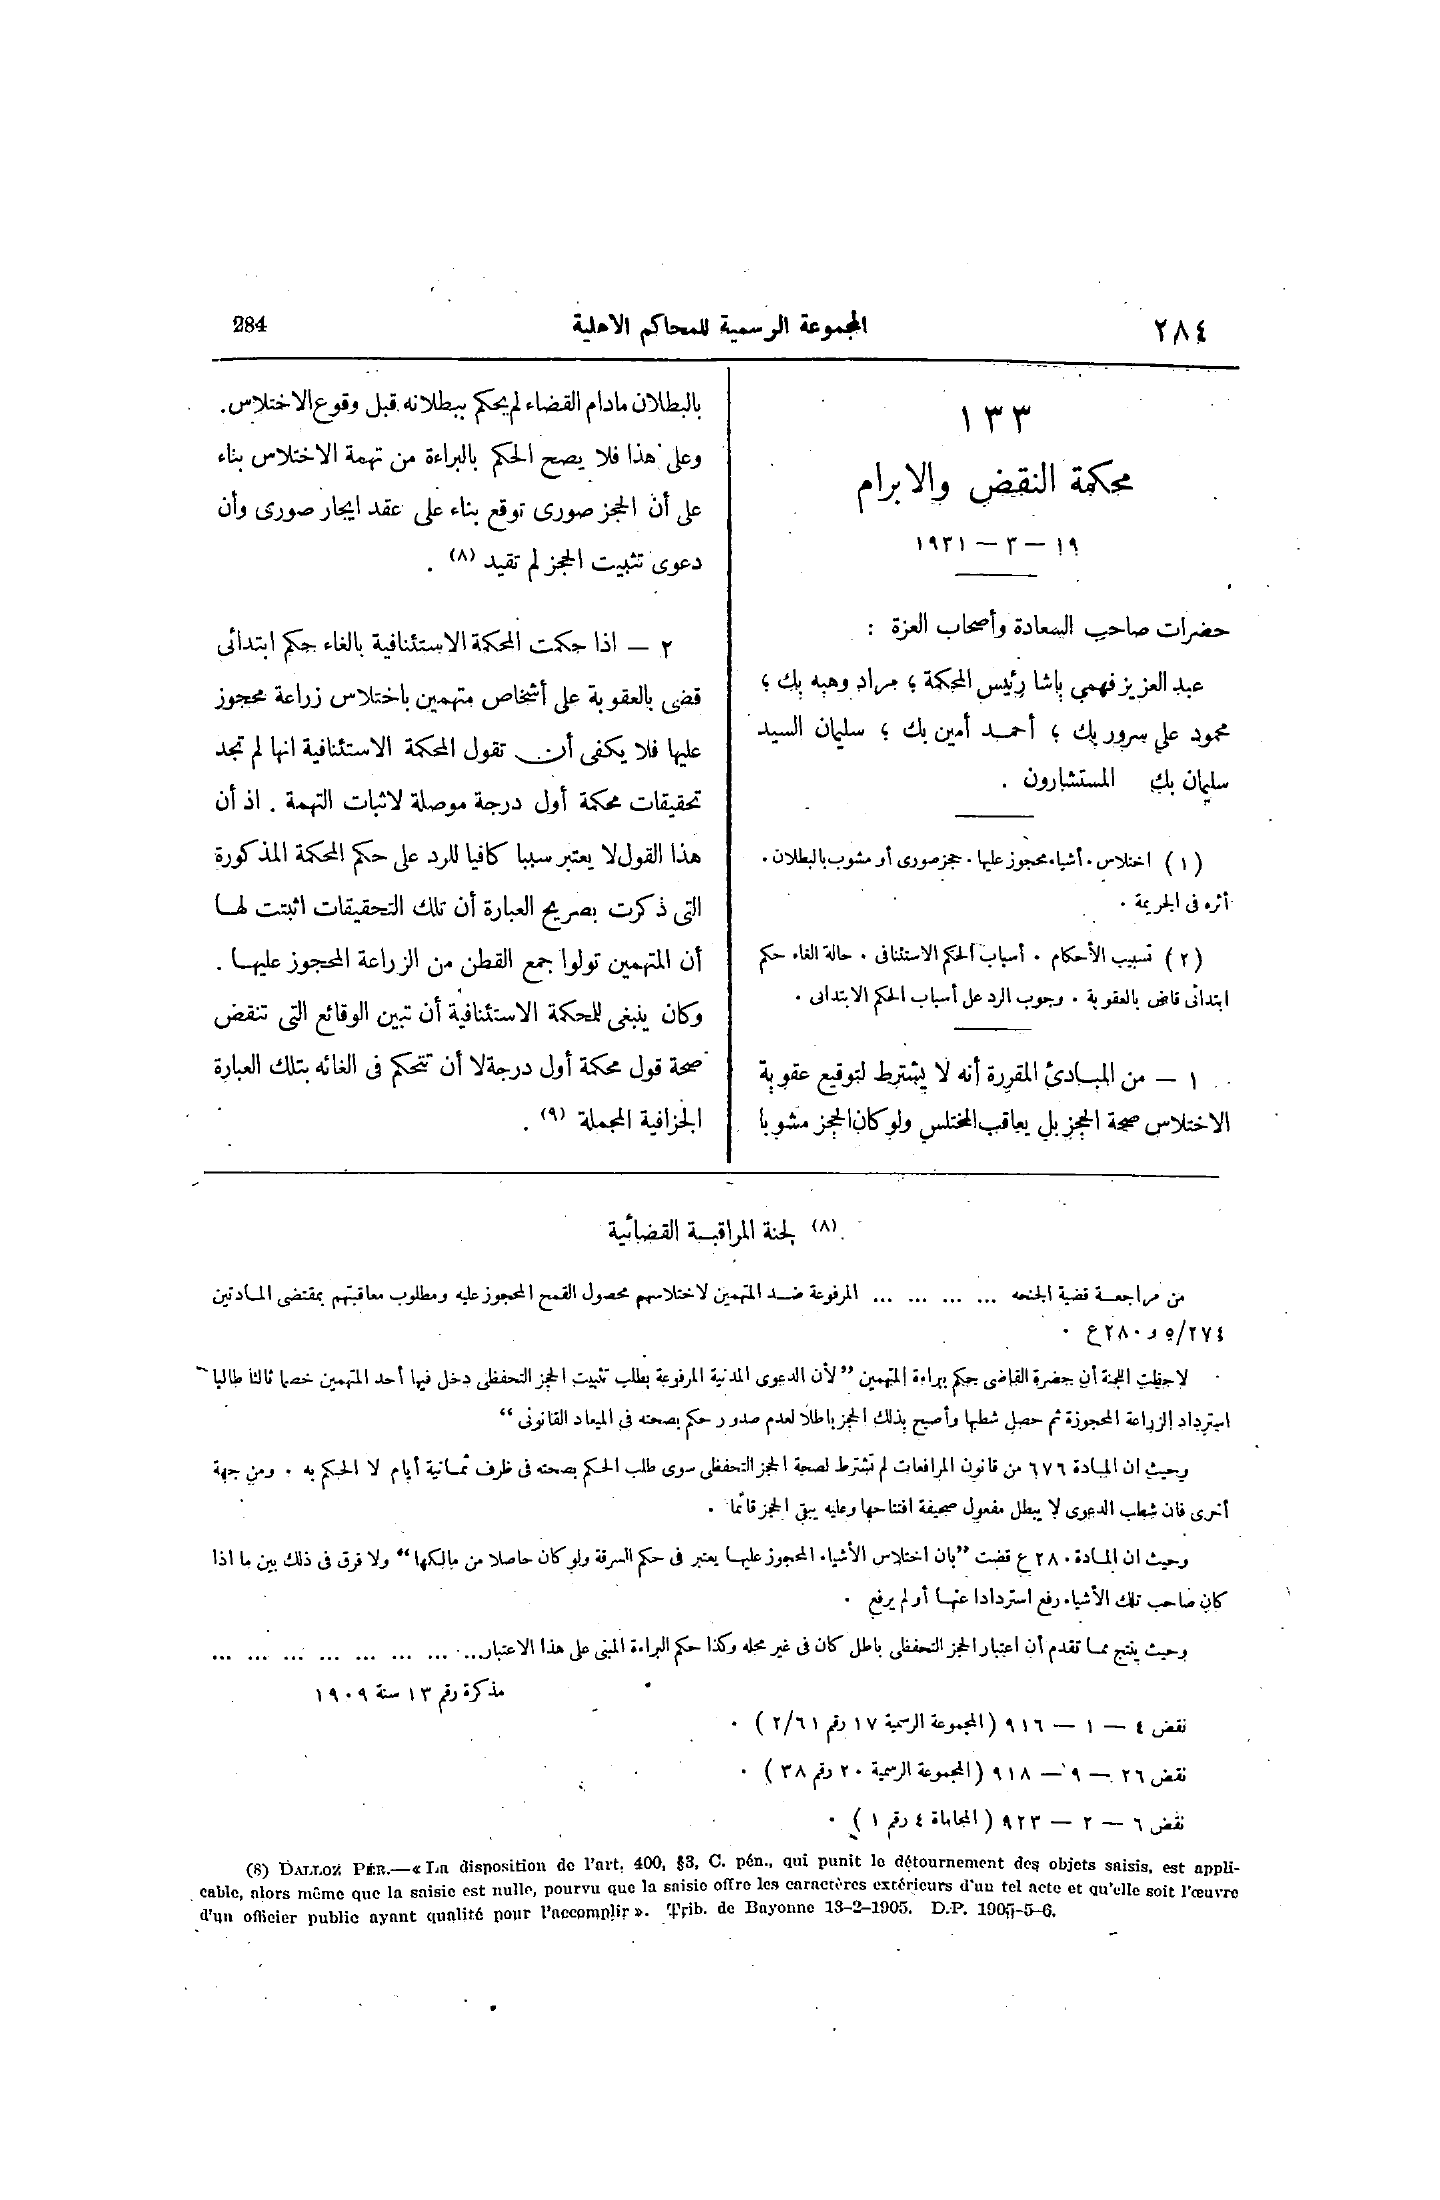 ٢٨٤
المجموعة الرسمية للمحاكم الاهلية
284
١٣٣
محكمة النقض والابرام
١٩ – ٣ – ١٩٣١
حضرات صاحب السعادة وأصحاب العزة :
عبد العزيز فهمي باشا رئيس المحكمة ؛ مراد وهبه بك ؛
محمود علي سرور بك ؛ أحمد أمين بك ؛ سليمان السيد
سليمان بك المستشارون .
(١) اختلاس . أشياء محجوز عليها . حجز صورى أو مشوب بالبطلان .
أثره فى الجريمة .
(٢) تسبيب الأحكام . أسباب الحكم الاستئنافى . حالة الغاء حكم
ابتدائى قاض بالعقوبة . وجوب الرد على أسباب الحكم الابتدائى .
١ – من المبادئ المقررة أنه لا يشترط لتوقيع عقوبة
الاختلاس صحة الحجز بل يعاقب المختلس ولو كان الحجز مشوبا
بالبطلان مادام القضاء لم يحكم ببطلانه قبل وقوع الاختلاس .
وعلى هذا فلا يصح الحكم بالبراءة من تهمة الاختلاس بناء
على أن الحجز صورى توقع بناء على عقد ايجار صورى وأن
دعوى تثبيت الحجز لم تقيد (٨) .
٢ – اذا حكمت المحكمة الاستئنافية بالغاء حكم ابتدائى
قضى بالعقوبة على أشخاص متهمين باختلاس زراعة محجوز
عليها فلا يكفى أن تقول المحكمة الاستئنافية انها لم تجد
تحقيقات محكمة أول درجة موصلة لاثبات التهمة . اذ أن
هذا القول لا يعتبر سببا كافيا للرد على حكم المحكمة المذكورة
التى ذكرت بصريح العبارة أن تلك التحقيقات اثبتت لها
أن المتهمين تولوا جمع القطن من الزراعة المحجوز عليها .
وكان ينبغى للمحكمة الاستئنافية أن تبين الوقائع التى تنقض
صحة قول محكمة أول درجة لا أن تتحكم فى الغائه بتلك العبارة
الجزافية المجملة (٩) .
(٨) لجنة المراقبة القضائية
من مراجعة قضية الجنحه ... ... ... ... المرفوعة ضد المتهمين لاختلاسهم محصول القمح المحجوز عليه ومطلوب معاقبتهم بمقتضى المادتين
٥/٢٧٤ و ٢٨٠ع .
لاحظت اللجنة أن حضرة القاضى حكم ببراءة المتهمين ”لأن الدعوى المدنية المرفوعة بطلب تثبيت الحجز التحفظى دخل فيها أحد المتهمين خصما ثالثا طالبا
استرداد الزراعة المحجوزة ثم حصل شطبها وأصبح بذلك الحجز باطلا لعدم صدور حكم بصحته فى الميعاد القانونى“
وحيث ان المادة ٦٧٦ من قانون المرافعات لم تشترط لصحة الحجز التحفظى سوى طلب الحكم بصحته فى ظرف ثمانية أيام لا الحكم به . ومن جهة
أخرى فان شطب الدعوى لا يبطل مفعول صحيفة افتتاحها وعليه يبقى الحجز قائما .
وحيث ان المادة ٢٨٠ ع قضت ”بان اختلاس الأشياء المحجوز عليها يعتبر فى حكم السرقة ولو كان حاصلا من مالكها“ ولا فرق فى ذلك بين ما اذا
كان صاحب تلك الأشياء رفع استردادا عنها أو لم يرفع .
وحيث ينتج مما تقدم أن اعتبار الحجز التحفظى باطل كان فى غير محله وكذا حكم البراءة المبنى على هذا الاعتبار... ... ... ... ... ... ... ...
مذكرة رقم ١٣ سنة ١٩٠٩
نقض ٤ – ١ – ٩١٦ (المجموعة الرسمية ١٧ رقم ٢/٦١) .
نقض ٢٦ – ٩ – ٩١٨ (المجموعة الرسمية ٢٠ رقم ٣٨) .
نقض ٦ – ٢ – ٩٢٣ (المحاماة ٤ رقم ١) .
(8) DALLOZ PÉR.—« La disposition de l'art. 400, §3, C. pén., qui punit le détournement des objets saisis, est appli-
cable, alors même que la saisie est nulle, pourvu que la saisie offre les caractères extérieurs d'un tel acte et qu'elle soit l'œuvre
d'un officier public ayant qualité pour l'accomplir ». Trib. de Bayonne 13–2–1905. D.P. 1905–5–6.